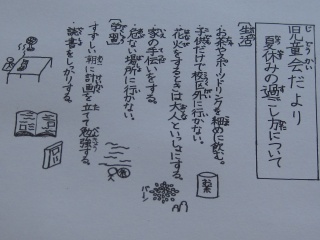 児童会だより
夏休みの過ごし方について
【生活】
・お茶やスポーツドリンクを細めに飲む。
・子供だけで校区外に行かない。
・花火をするときは大人といっしょにする。
・家の手伝いをする。
・危ない場所に行かない。
【学習】
・すずしい朝に計画を立てて勉強する。
・読書をしっかりする。